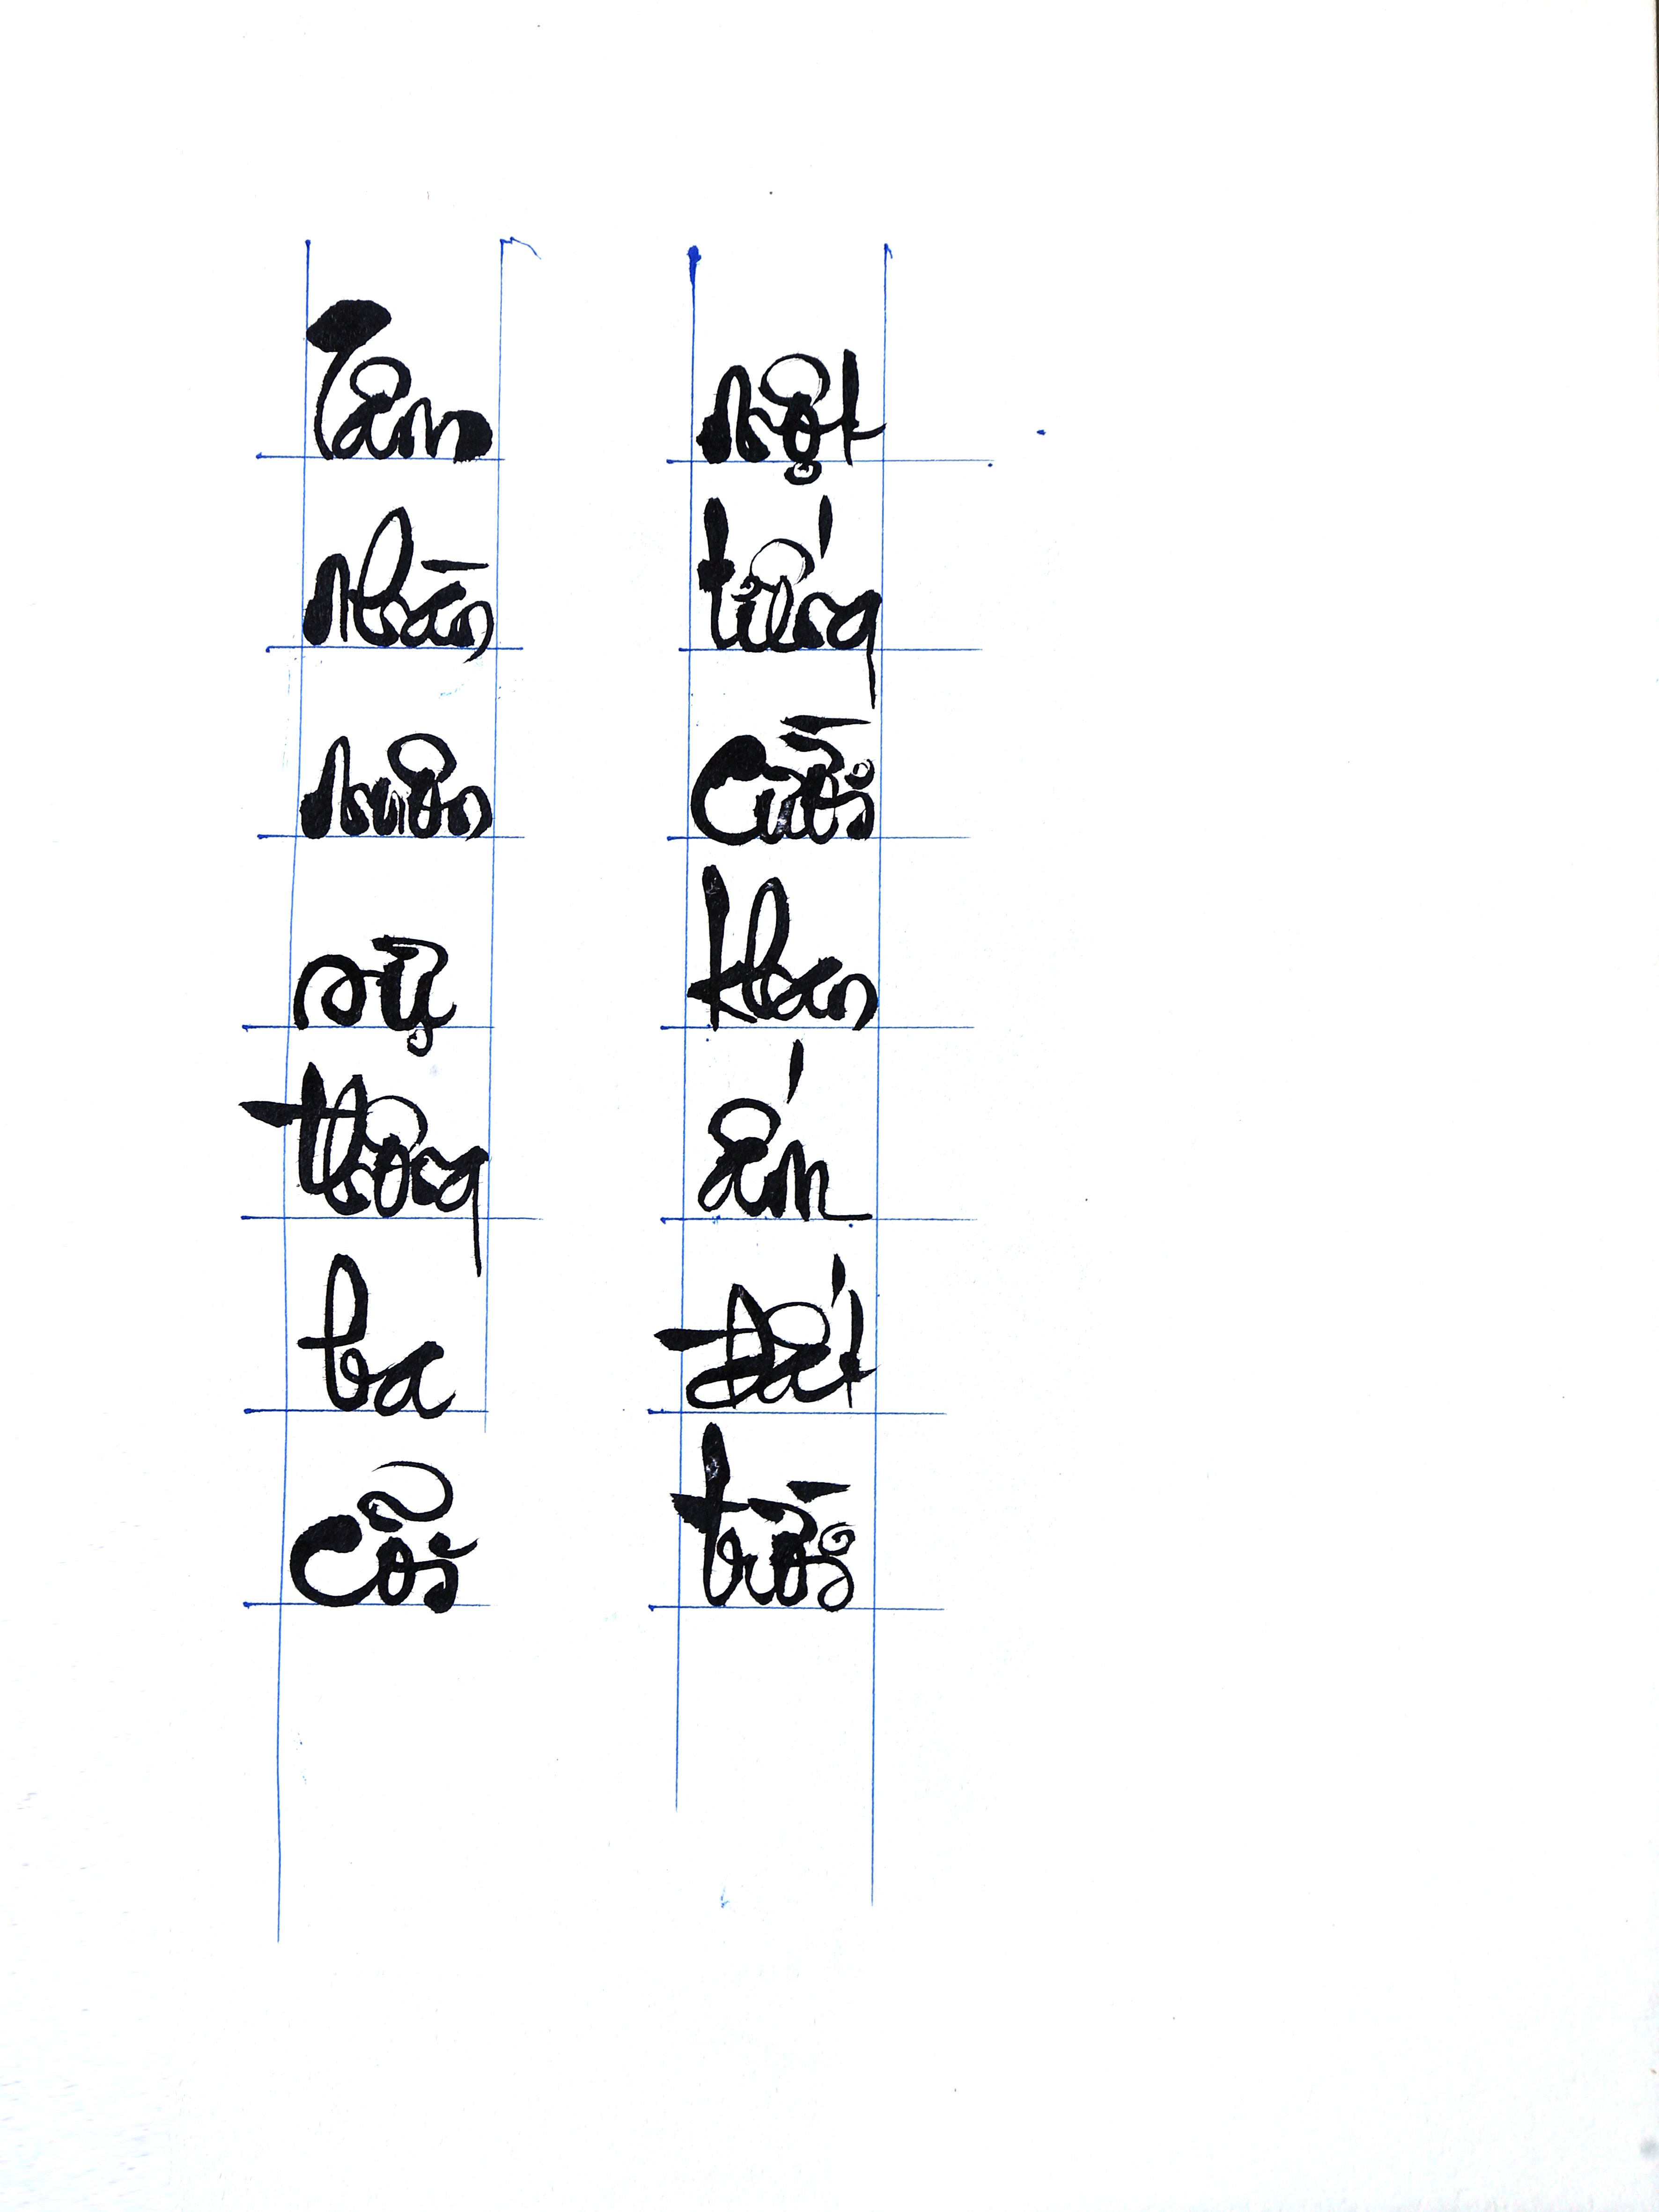 Tâm nhàn muôn sự thông ba cõi
một tiếng cười khan ấm đất trời